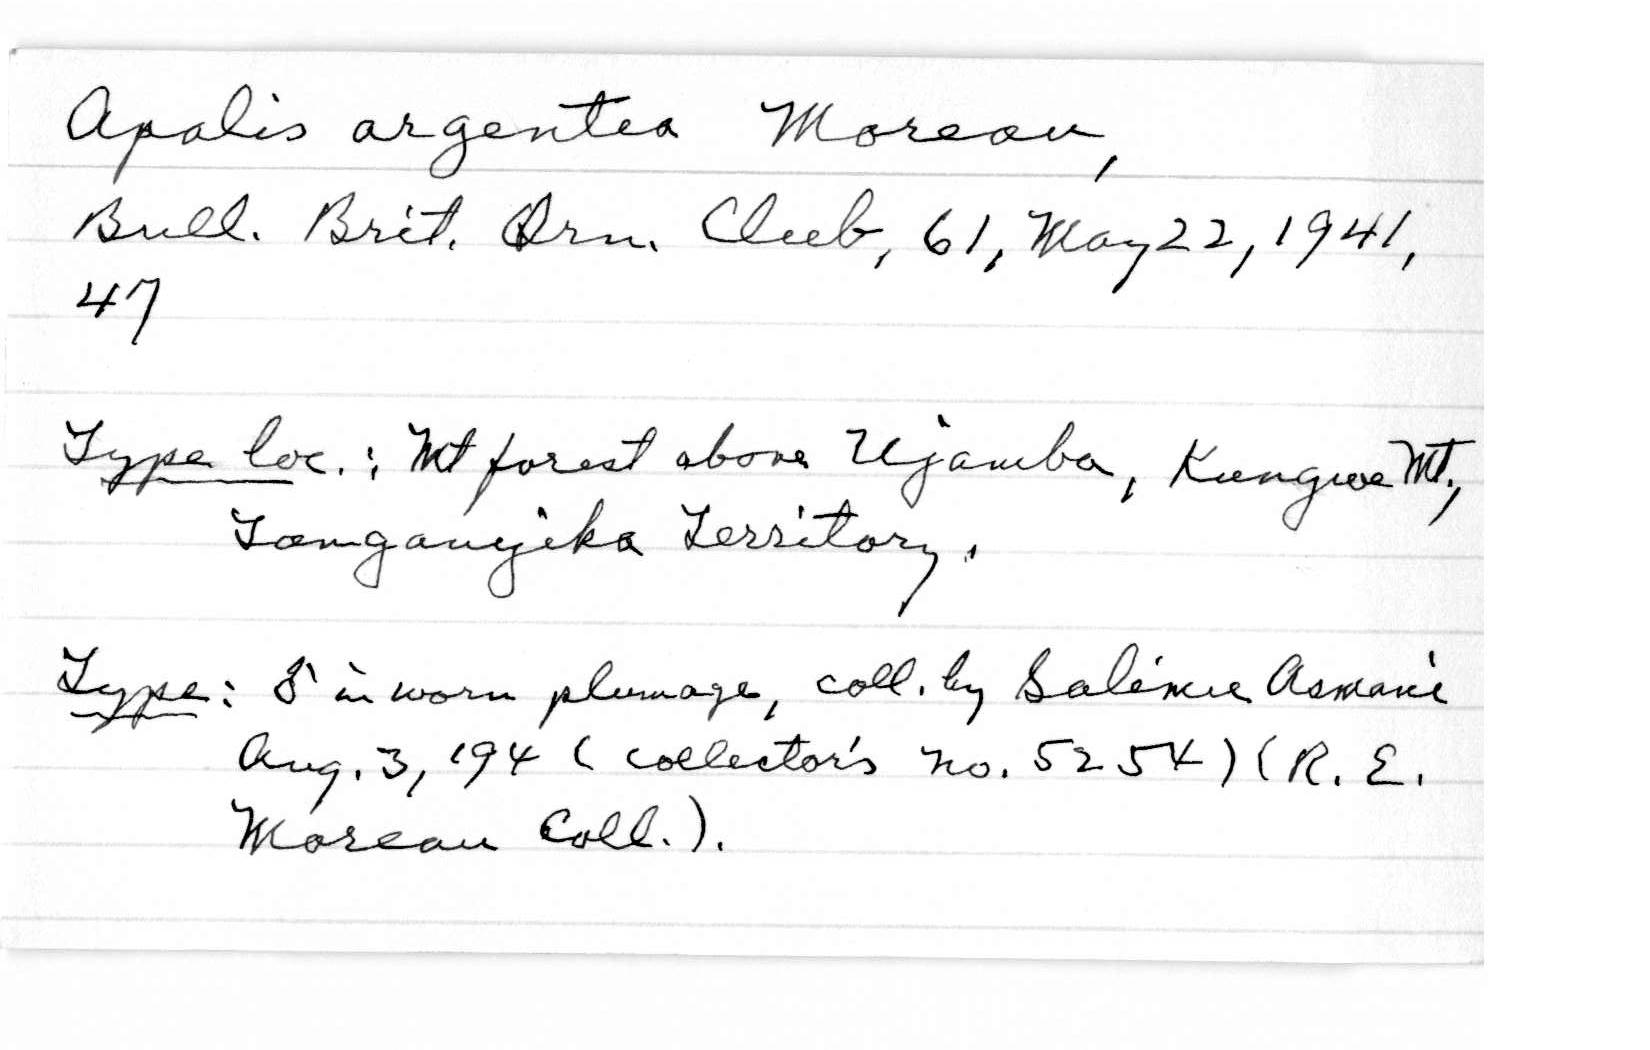 Apalis argentea Moreau,
Bull. Brit. Orn. Club, 61, May 22, 1941,
47
Type loc.: Mt forest above Ujamba, Kungwe Mt.,
Tanganyika Territory.
Type: ♂ in worn plumage, coll. by Salimu Asmani
Aug. 3, 194 (collector's no. 5254) (R. E.
Moreau Coll.).